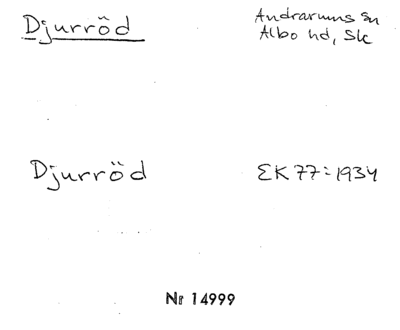 Djurröd
Andrarums sn
Albo hd, Sk
Djurröd
EK 77:1934
Nr 14999